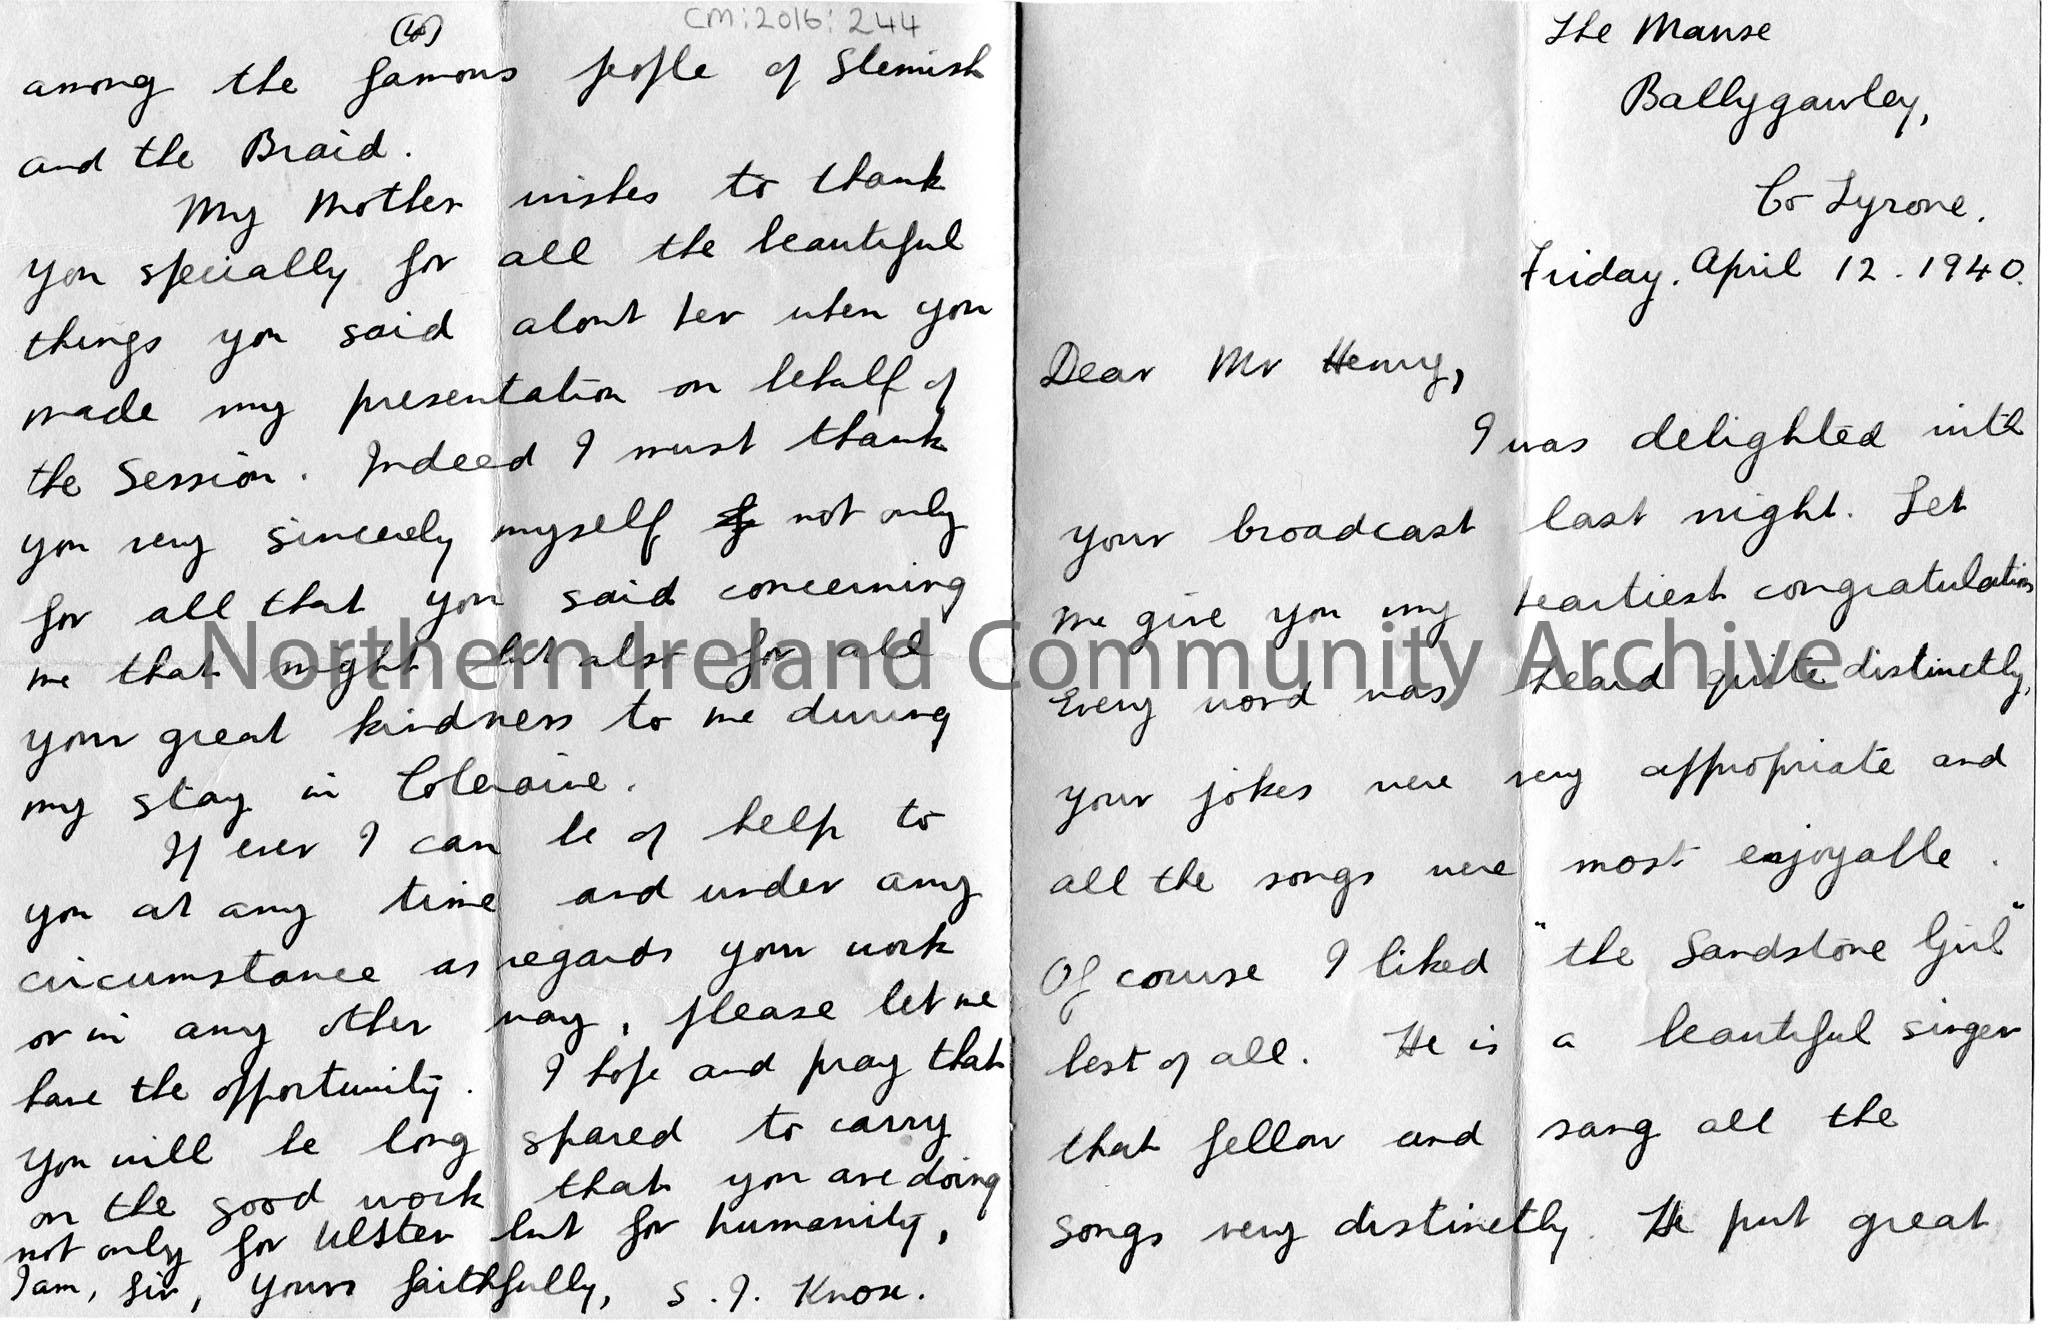 CM:2016:244
(4)
among the famous people of Slemish
and the Braid.
My Mother wishes to thank
you specially for all the beautiful
things you said about her when you
made my presentation on behalf of
the Session. Indeed I must thank
you very sincerely myself not only
for all that you said concerning
me that night but also for all
your great kindness to me during
my stay in Coleraine.
If ever I can be of help to
you at any time and under any
circumstance as regards your work
or in any other way, please let me
have the opportunity. I hope and pray that
you will be long spared to carry
on the good work that you are doing
not only for Ulster but for humanity,
I am, Sir, yours faithfully, S. J. Knox.
The Manse
Ballygawley,
Co Tyrone.
Friday. April 12. 1940.
Dear Mr Henry,
I was delighted with
your broadcast last night. Let
me give you my heartiest congratulations
Every word was heard quite distinctly,
your jokes were very appropriate and
all the songs were most enjoyable.
Of course I liked "the Sandstone Girl"
best of all. He is a beautiful singer
that fellow and sang all the
songs very distinctly. He put great
Northern Ireland Community Archive